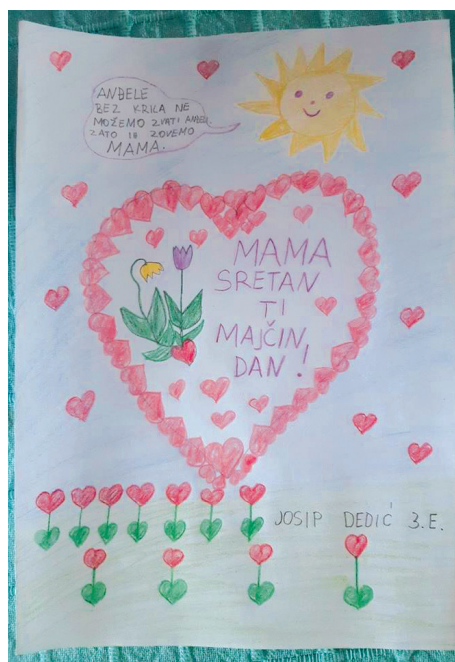 ANĐELE
BEZ KRILA NE
MOŽEMO ZVATI ANĐELI.
ZATO IH ZOVEMO
MAMA.
MAMA
SRETAN
TI
MAJČIN
DAN!
JOSIP DEDIĆ 3.E.